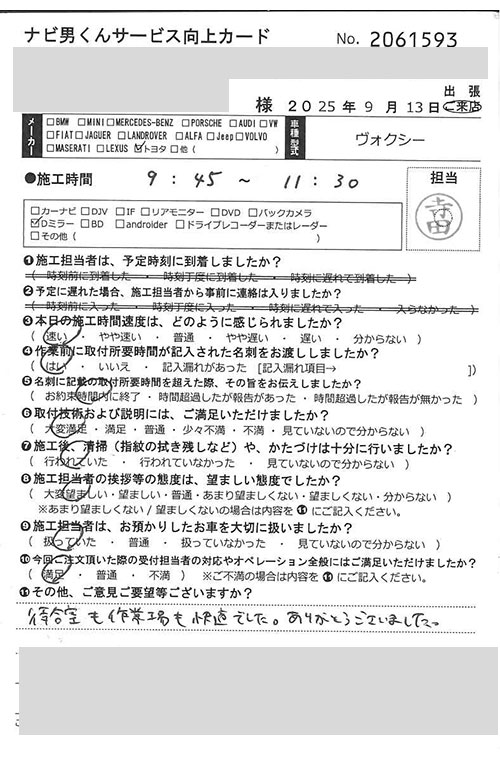 ナビ男くんサービス向上カード No. 2061593
様 2025年 9月 13日 出張・ご来店
メーカー □BMW □MINI □MERCEDES-BENZ □PORSCHE □AUDI □VW
□FIAT □JAGUER □LANDROVER □ALFA □Jeep □VOLVO
□MASERATI □LEXUS ☑トヨタ □他 ( )
車種型式 ヴォクシー
●施工時間 9 : 45 ~ 11 : 30
担当
寺田
□カーナビ □DJV □IF □リアモニター □DVD □バックカメラ
☑Dミラー □BD □androider □ドライブレコーダーまたはレーダー
□その他 ( )
❶施工担当者は、予定時刻に到着しましたか?
( 時刻前に到着した ・ 時刻丁度に到着した ・ 時刻に遅れて到着した )
❷予定に遅れた場合、施工担当者から事前に連絡は入りましたか?
( 時刻前に入った ・ 時刻丁度に入った ・ 時刻に遅れて入った ・ 入らなかった )
❸本日の施工時間速度は、どのように感じられましたか?
( 速い ・ やや速い ・ 普通 ・ やや遅い ・ 遅い ・ 分からない )
❹作業前に取付所要時間が記入された名刺をお渡ししましたか?
( はい ・ いいえ ・ 記入漏れがあった [記入漏れ項目→ ])
❺名刺に記載の取付所要時間を超えた際、その旨をお伝えしましたか?
( お約束時間内に終了 ・ 時間超過したが報告があった ・ 時間超過したが報告が無かった )
❻取付技術および説明には、ご満足いただけましたか?
( 大変満足 ・ 満足 ・ 普通 ・ 少々不満 ・ 不満 ・ 見ていないので分からない )
❼施工後、清掃（指紋の拭き残しなど）や、かたづけは十分に行いましたか?
( 行われていた ・ 行われていなかった ・ 見ていないので分からない )
❽施工担当者の挨拶等の態度は、望ましい態度でしたか?
( 大変望ましい・望ましい・普通・あまり望ましくない・望ましくない・分からない )
※あまり望ましくない / 望ましくないの場合は内容を⓫にご記入ください。
❾施工担当者は、お預かりしたお車を大切に扱いましたか?
( 扱っていた ・ 普通 ・ 扱っていなかった ・ 見ていないので分からない )
❿今回ご注文頂いた際の受付担当者の対応やオペレーション全般にはご満足いただけましたか?
( 満足 ・ 普通 ・ 不満 ) ※ご不満の場合は内容を⓫にご記入ください。
⓫その他、ご意見ご要望等ございますか?
待合室も作業場も快適でした。ありがとうございました。